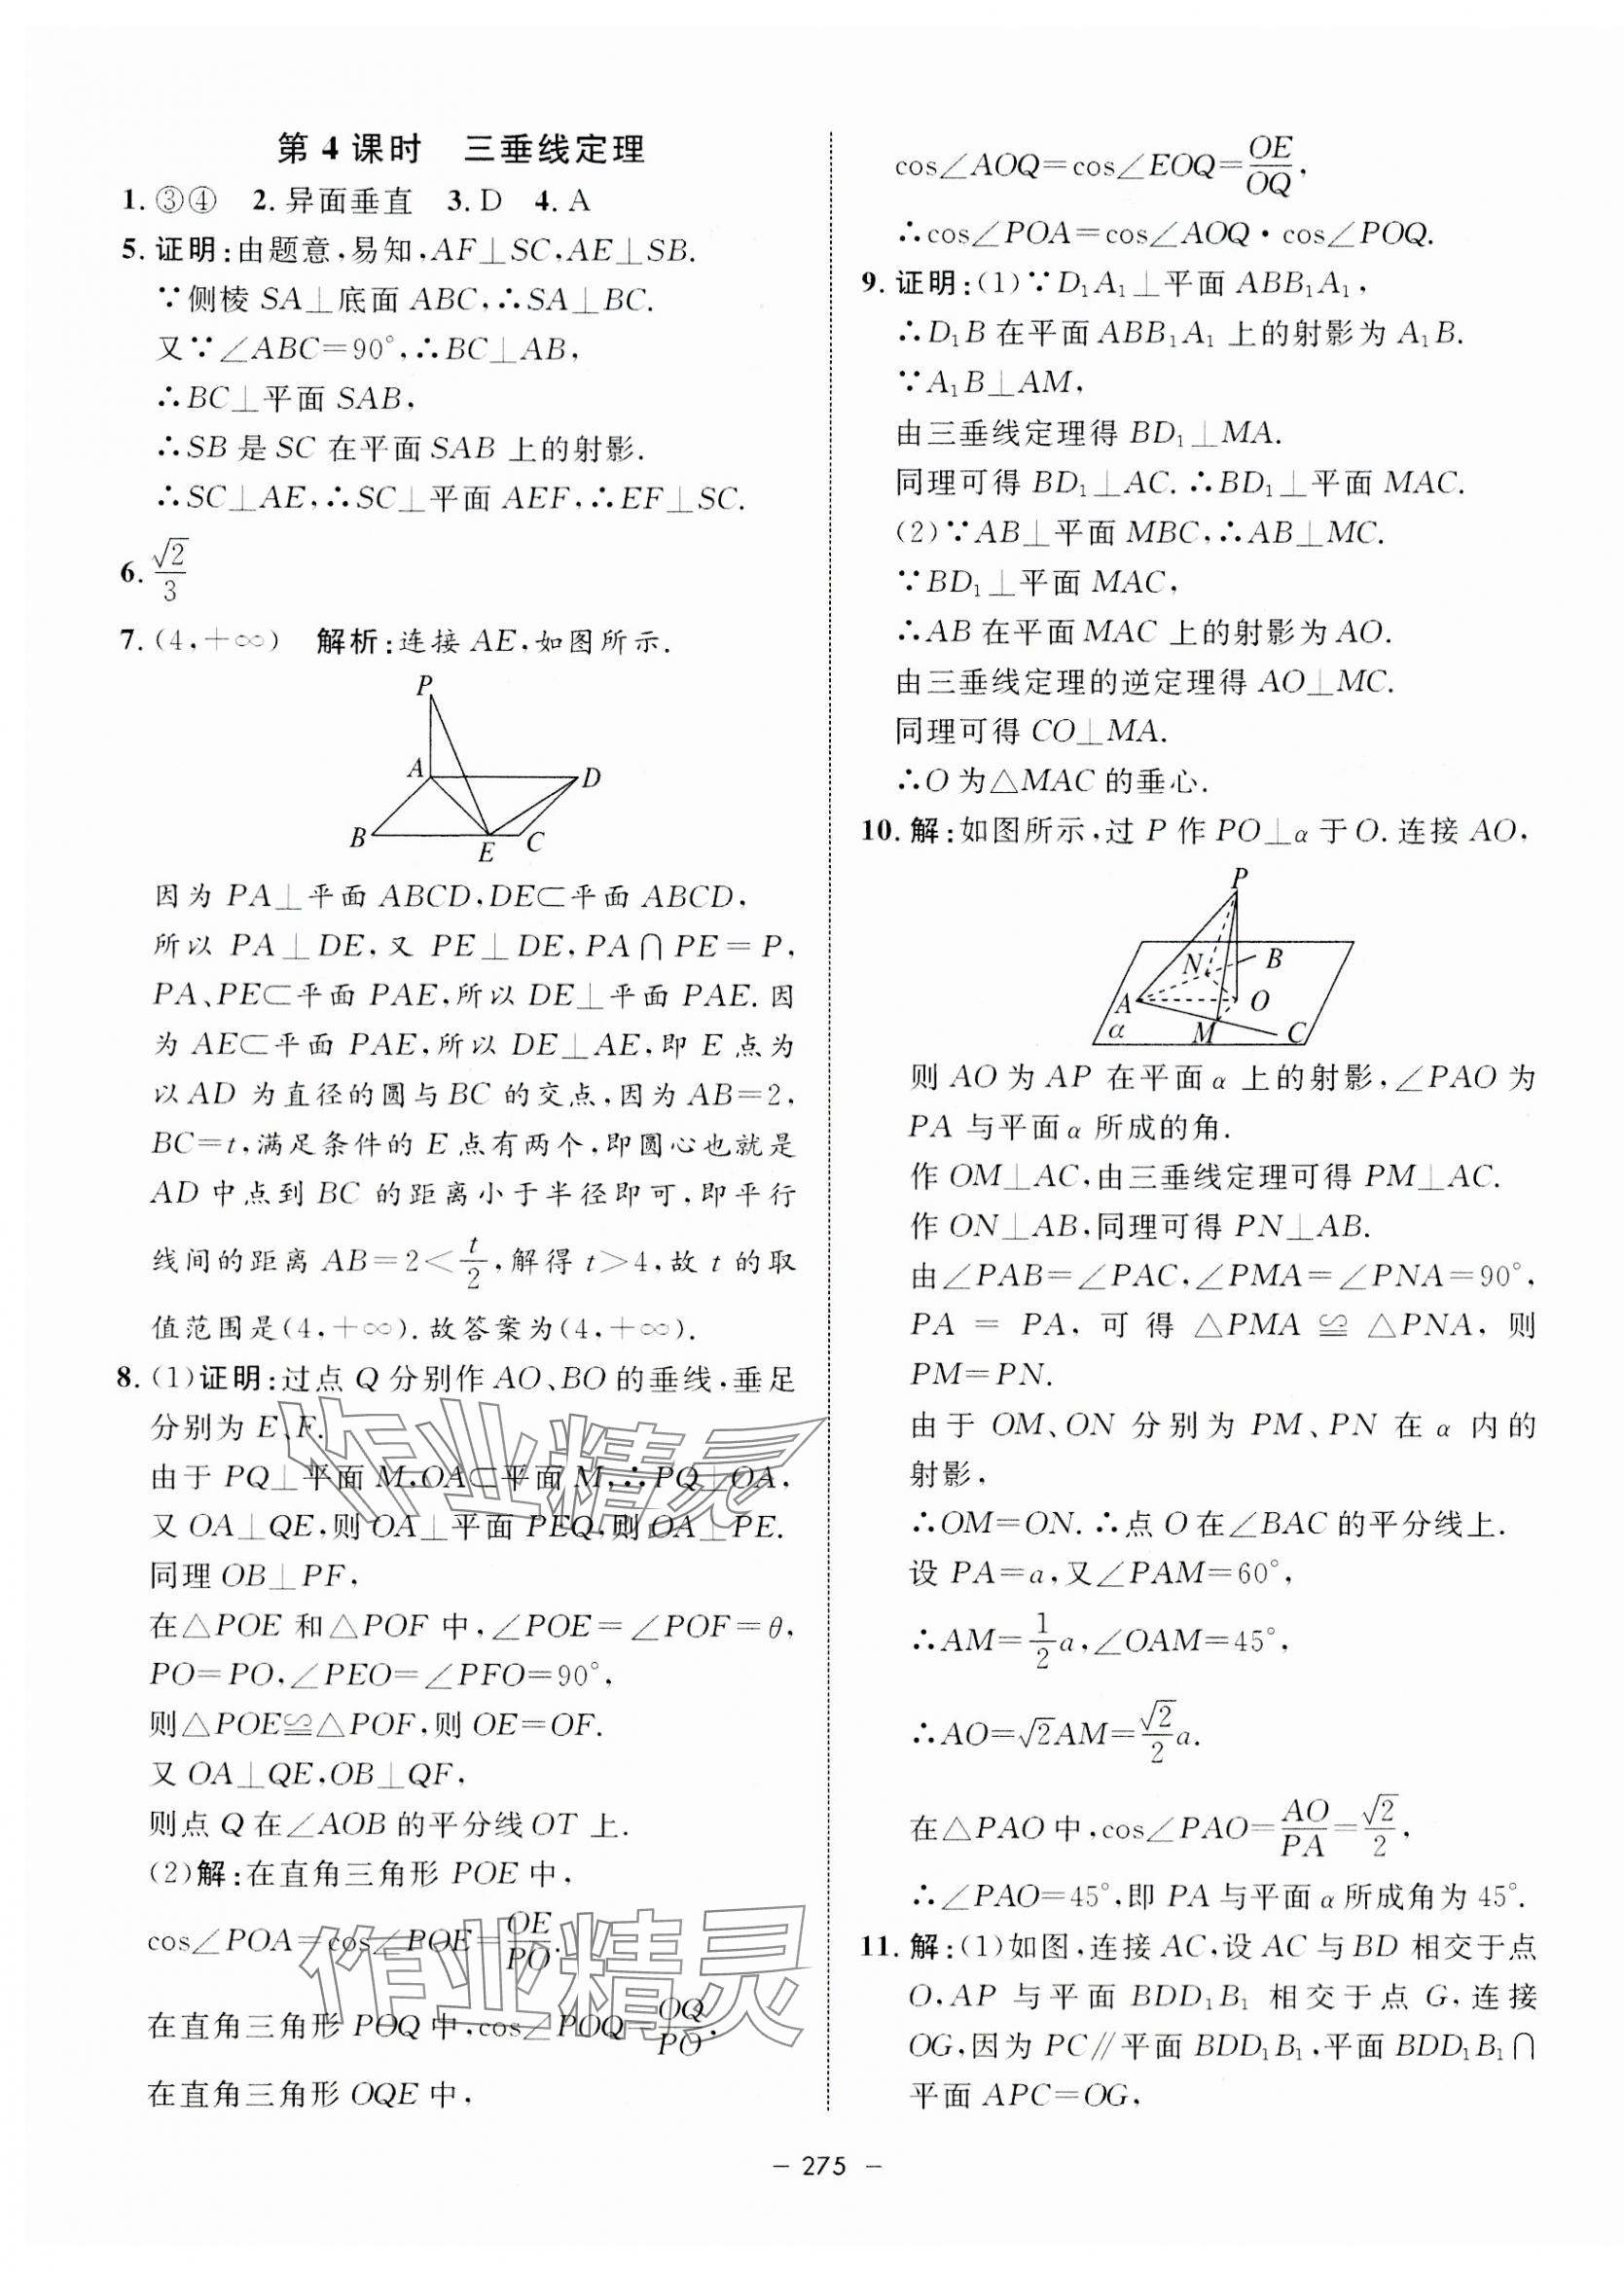 第 4 课时　三垂线定理
1. ③④　2. 异面垂直　3. D　4. A
5. 证明:由题意,易知,AF⊥SC,AE⊥SB.
∵侧棱 SA⊥底面 ABC,∴SA⊥BC.
又∵∠ABC=90°,∴BC⊥AB,
∴BC⊥平面 SAB,
∴SB 是 SC 在平面 SAB 上的射影.
∴SC⊥AE,∴SC⊥平面 AEF,∴EF⊥SC.
6. √2/3
7. (4,+∞)　解析:连接 AE,如图所示.
P
A
D
B
E
C
因为 PA⊥平面 ABCD,DE⊂平面 ABCD,
所以 PA⊥DE,又 PE⊥DE,PA∩PE=P,
PA、PE⊂平面 PAE,所以 DE⊥平面 PAE. 因
为 AE⊂平面 PAE,所以 DE⊥AE,即 E 点为
以 AD 为直径的圆与 BC 的交点,因为 AB=2,
BC=t,满足条件的 E 点有两个,即圆心也就是
AD 中点到 BC 的距离小于半径即可,即平行
线间的距离 AB=2<t/2,解得 t>4,故 t 的取
值范围是(4,+∞).故答案为(4,+∞).
8. (1)证明:过点 Q 分别作 AO、BO 的垂线,垂足
分别为 E、F.
由于 PQ⊥平面 M,OA⊂平面 M,∴PQ⊥OA,
又 OA⊥QE,则 OA⊥平面 PEQ,则 OA⊥PE.
同理 OB⊥PF,
在△POE 和△POF 中,∠POE=∠POF=θ,
PO=PO,∠PEO=∠PFO=90°,
则△POE≌△POF,则 OE=OF.
又 OA⊥QE,OB⊥QF,
则点 Q 在∠AOB 的平分线 OT 上.
(2)解:在直角三角形 POE 中,
cos∠POA=cos∠POE=OE/PO.
在直角三角形 POQ 中,cos∠POQ=OQ/PO.
在直角三角形 OQE 中,
cos∠AOQ=cos∠EOQ=OE/OQ,
∴cos∠POA=cos∠AOQ·cos∠POQ.
9. 证明:(1)∵D₁A₁⊥平面 ABB₁A₁,
∴D₁B 在平面 ABB₁A₁ 上的射影为 A₁B.
∵A₁B⊥AM,
由三垂线定理得 BD₁⊥MA.
同理可得 BD₁⊥AC. ∴BD₁⊥平面 MAC.
(2)∵AB⊥平面 MBC,∴AB⊥MC.
∵BD₁⊥平面 MAC,
∴AB 在平面 MAC 上的射影为 AO.
由三垂线定理的逆定理得 AO⊥MC.
同理可得 CO⊥MA.
∴O 为△MAC 的垂心.
10. 解:如图所示,过 P 作 PO⊥α 于 O. 连接 AO,
P
N
B
A
O
α
M
C
则 AO 为 AP 在平面 α 上的射影,∠PAO 为
PA 与平面 α 所成的角.
作 OM⊥AC,由三垂线定理可得 PM⊥AC.
作 ON⊥AB,同理可得 PN⊥AB.
由∠PAB=∠PAC,∠PMA=∠PNA=90°,
PA = PA, 可得 △PMA ≌ △PNA, 则
PM=PN.
由于 OM、ON 分别为 PM、PN 在 α 内的
射影,
∴OM=ON. ∴点 O 在∠BAC 的平分线上.
设 PA=a,又∠PAM=60°,
∴AM=1/2a,∠OAM=45°,
∴AO=√2AM=√2/2a.
在△PAO 中,cos∠PAO=AO/PA=√2/2,
∴∠PAO=45°,即 PA 与平面 α 所成角为 45°.
11. 解:(1)如图,连接 AC,设 AC 与 BD 相交于点
O,AP 与平面 BDD₁B₁ 相交于点 G,连接
OG,因为 PC∥平面 BDD₁B₁,平面 BDD₁B₁∩
平面 APC=OG,
作业精灵
作业精灵
– 275 –